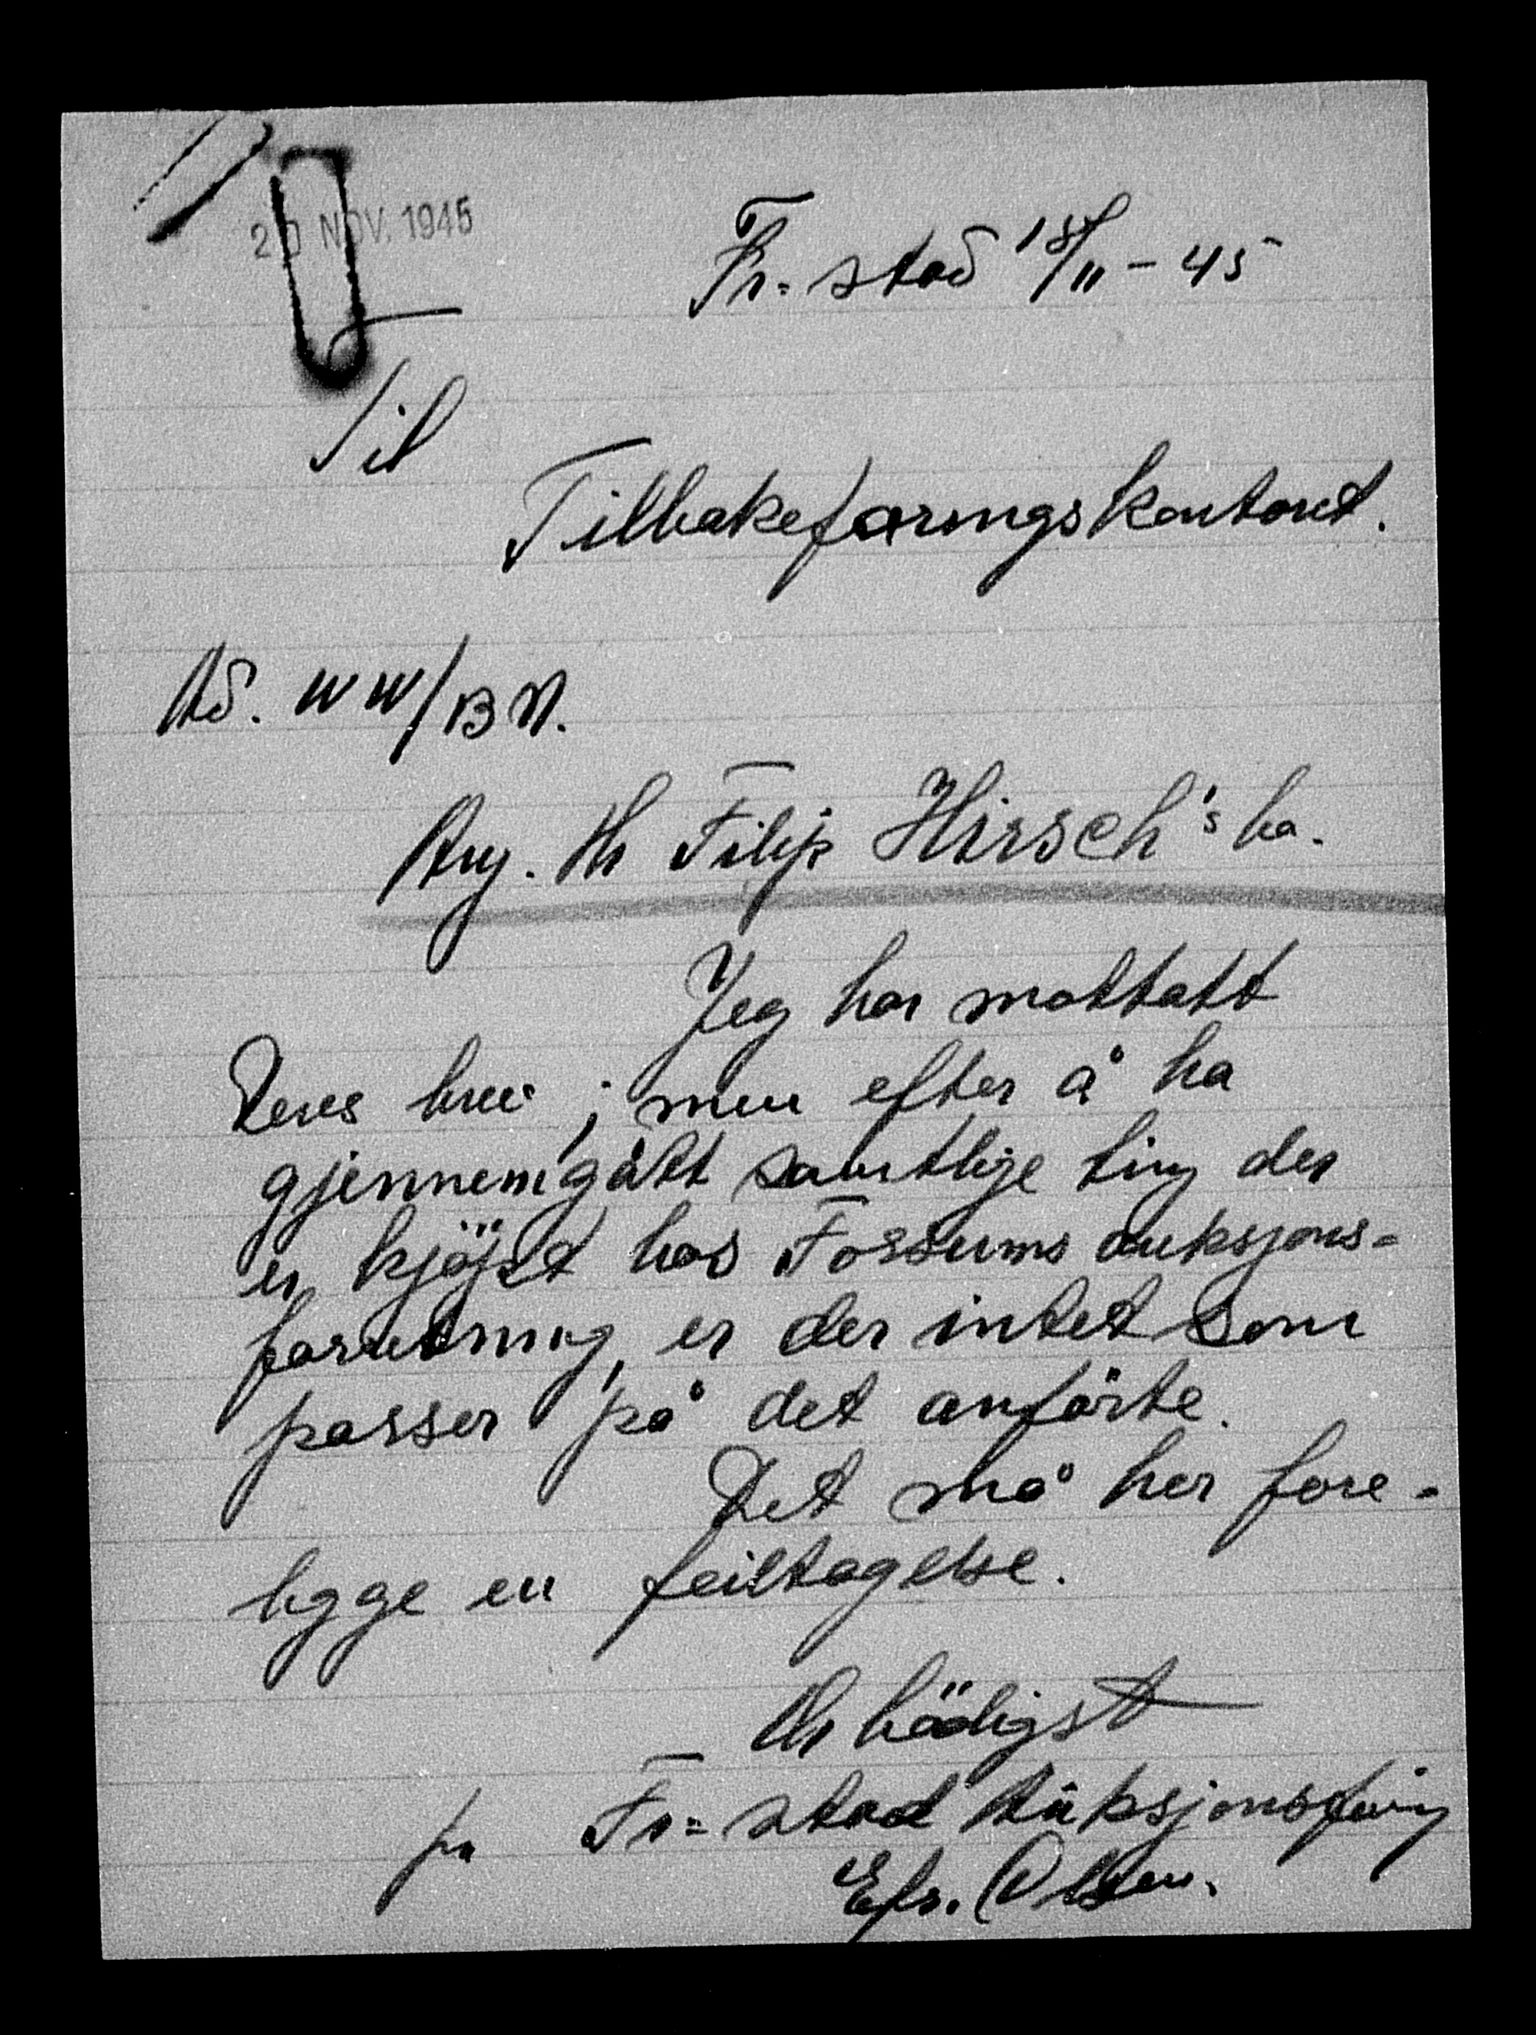 20 NOV. 1945
Fr=stad 18/11-45
Til
Tilbakeføringskontoret.
Ad. WW/BN.
Ang. Hr Filip Hirsch's ba.
Jeg har mottatt
Deres brev ; men efter å ha
gjennemgått samtlige ting der
er kjöpt hos Fossums auksjons-
foretning, er der intet som
passer på det anförte.
Det må her fore-
ligge en feiltagelse.
Ærbödigst
pr Fr=stad Auksjonsfring
Efr. Olsen.